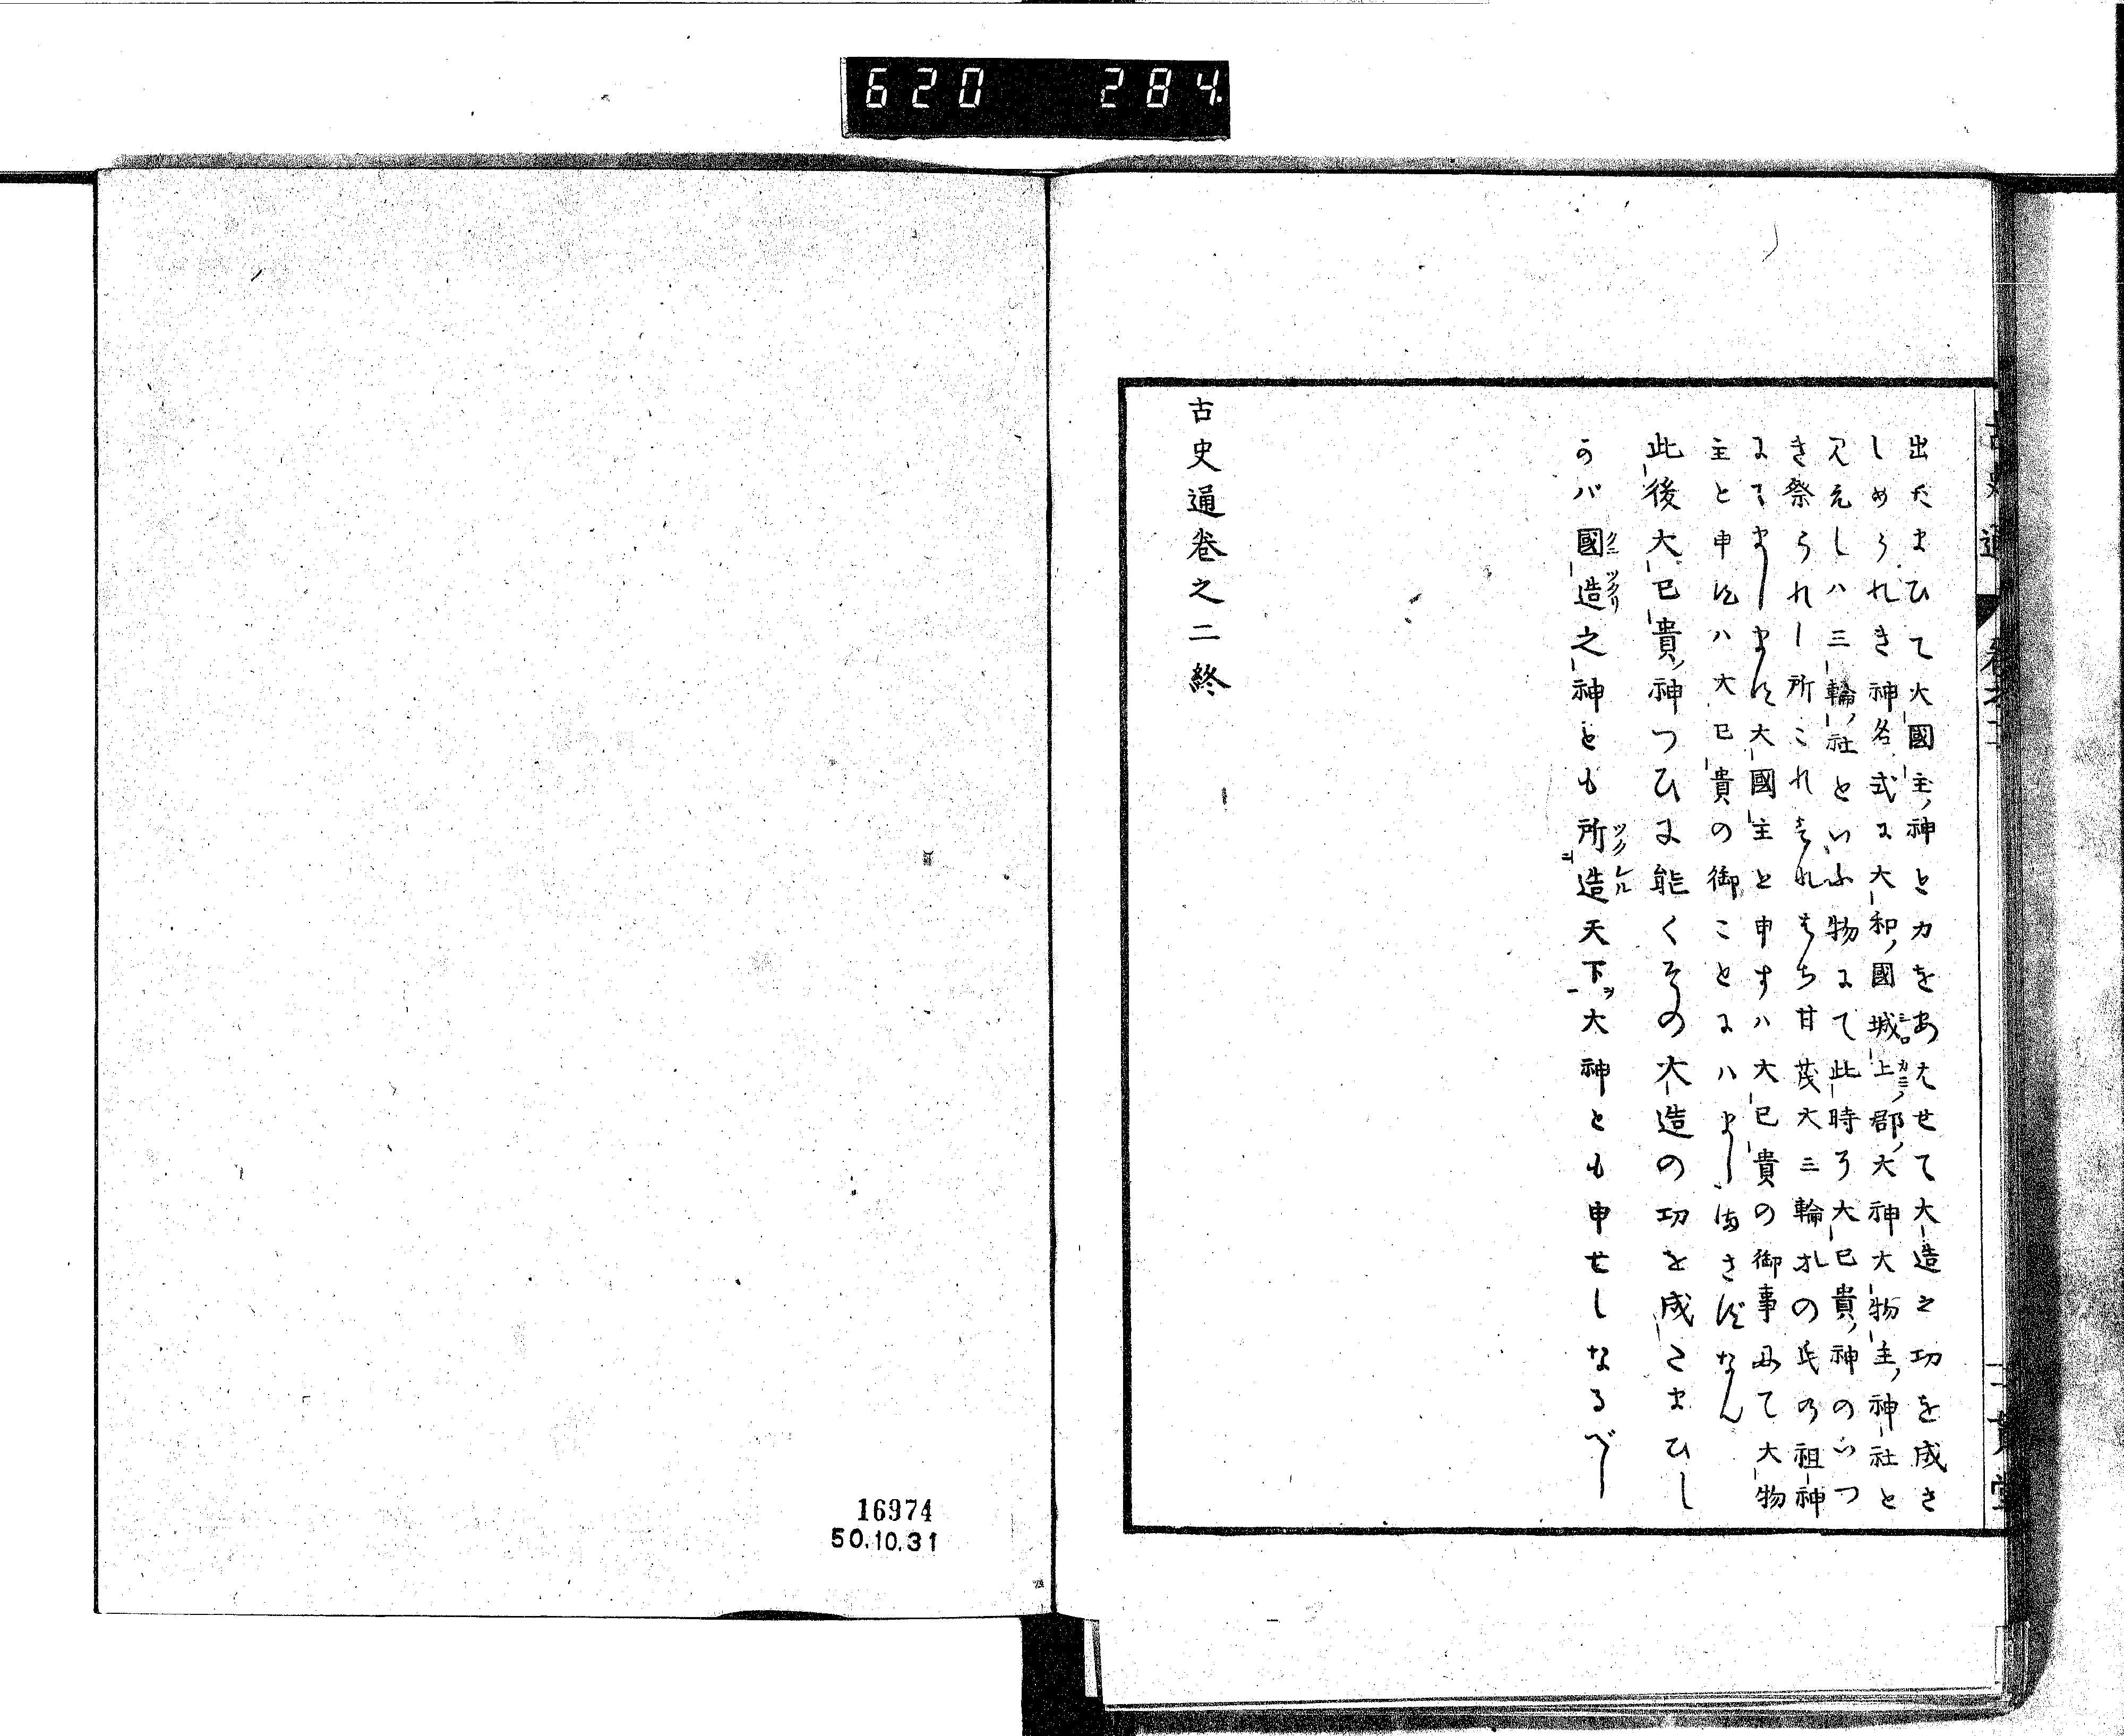 620 284
出たまひて大國主ノ神と力をあはせて大造之功を成さ
しめられき神名式に大和ノ國城上ノ郡ノ大神大物主ノ神社と
見えしハ三輪ノ社といふ物にて此時に大己貴ノ神のいつ
き祭られし所これすなはち甘茂大三輪氏の祖神
にてましますに大國主と申すハ大己貴の御事にて大物
主と申すハ大己貴の御ことにハましまさずなん
此後大己貴ノ神つひに能くその大造の功を成さまひし
かバ國造之神とも所造天下大神とも申せしなるべし
古史通卷之二終
16974
50.10.31